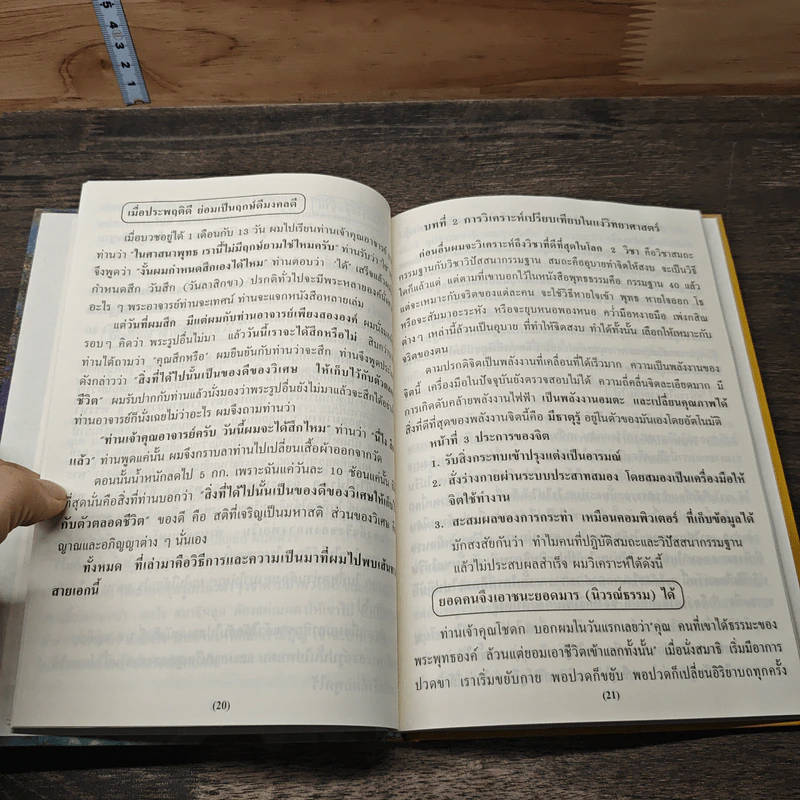 5 4 3 2 1
เมื่อประพฤติดี ย่อมเป็นฤกษ์ดีมงคลดี
เมื่อบวชอยู่ได้ 1 เดือนกับ 13 วัน ผมไปเรียนท่านเจ้าคุณอาจารย์
ท่านว่า "ในศาสนาพุทธ เรานี้ไม่มีฤกษ์ยามใช่ไหมครับ" ท่านรับว่า "ใช่"
จึงพูดต่อว่า "งั้นผมกำหนดสึกเองได้ไหม" ท่านตอบว่า "ได้" เสร็จแล้ว
กำหนดสึก วันสึก (วันลาสิกขา) ปรกติทั่วไปจะมีพระหลายองค์นั่ง
อะไร ๆ พระอาจารย์ท่านจะเทศน์ ท่านจะแจกหนังสือหลายเล่ม
แต่วันที่ผมสึก มีแต่ผมกับท่านอาจารย์เพียงสององค์ ผมนั่ง
รอบๆ คิดว่า พระรูปอื่นไม่มา แล้ววันนี้เราจะได้สึกหรือไม่ สิบกว่า
ท่านได้ถามว่า "คุณสึกหรือ" ผมยืนยันกับท่านว่าจะสึก ท่านจึงพูด
ดังกล่าวว่า "สิ่งที่ได้ไปนั้นเป็นของดีของวิเศษ ให้เก็บไว้กับตัวตลอด
ชีวิต" ผมรับปากกับท่านแล้วนั่งมองว่าพระรูปอื่นยังไม่มาแล้วจะสึกได้
ท่านอาจารย์ก็นั่งเฉยไม่ว่าอะไร ผมจึงถามท่านว่า
"ท่านเจ้าคุณอาจารย์ครับ วันนี้ผมจะได้สึกไหม" ท่านว่า "นี่ไง
แล้ว" ท่านพูดแค่นั้น ผมจึงกราบลาท่านไปเปลี่ยนเสื้อผ้าออกจากวัด
ตอนนั้นน้ำหนักลดไป 5 กก. เพราะฉันแค่วันละ 10 ช้อนแค่นั้น
ที่สุดนั่นคือสิ่งที่ท่านบอกว่า "สิ่งที่ได้ไปนั้นเป็นของดีของวิเศษให้เก็บ
กับตัวตลอดชีวิต" ของดี คือ สติที่เจริญเป็นมหาสติ ส่วนของวิเศษ
ญาณและอภิญญาต่าง ๆ นั่นเอง
ทั้งหมด ที่เล่ามาคือวิธีการและความเป็นมาที่ผมไปพบเส้นทาง
สายเอกนี้
(20)
บทที่ 2 การวิเคราะห์เปรียบเทียบในแง่วิทยาศาสตร์
ก่อนอื่นผมจะวิเคราะห์ถึงวิชาที่ดีที่สุดในโลก 2 วิชา คือวิชาสมถะ
กรรมฐานกับวิชาวิปัสสนากรรมฐาน สมถะคืออุบายทำจิตให้สงบ จะเป็นวิธี
ใดก็แล้วแต่ แต่ตามที่เขาบอกไว้ในหนังสือพุทธธรรมคือ กรรมฐาน 40 แล้ว
แต่จะเหมาะกับจริตของแต่ละคน จะใช้วิธีหายใจเข้า พุทธ หายใจออก โธ
หรือจะสัมมาอะระหัง หรือจะยุบหนอพองหนอ คว่ำมือหงายมือ เพ่งกสิณ
ต่างๆ เหล่านี้ล้วนเป็นอุบาย ที่ทำให้จิตสงบ ทำได้ทั้งนั้น เลือกให้เหมาะกับ
จริตของตน
ตามปรกติจิตเป็นพลังงานที่เคลื่อนที่ได้เร็วมาก ความเป็นพลังงานของ
จิตนี้ เครื่องมือในปัจจุบันยังตรวจสอบไม่ได้ ความถี่คลื่นจิตละเอียดมาก มี
การเกิดดับคล้ายพลังงานไฟฟ้า เป็นพลังงานอมตะ และเปลี่ยนคุณภาพได้
สิ่งที่ดีที่สุดของพลังงานจิตนี้คือ มีธาตุรู้ อยู่ในตัวของมันเองโดยอัตโนมัติ
หน้าที่ 3 ประการของจิต
1. รับสิ่งกระทบเข้าปรุงแต่งเป็นอารมณ์
2. สั่งร่างกายผ่านระบบประสาทสมอง โดยสมองเป็นเครื่องมือให้
จิตใช้ทำงาน
3. สะสมผลของการกระทำ เหมือนคอมพิวเตอร์ ที่เก็บข้อมูลได้
มักสงสัยกันว่า ทำไมคนที่ปฏิบัติสมถะและวิปัสสนากรรมฐาน
แล้วไม่ประสบผลสำเร็จ ผมวิเคราะห์ได้ดังนี้
ยอดคนจึงเอาชนะยอดมาร (นิวรณ์ธรรม) ได้
ท่านเจ้าคุณโชดก บอกผมในวันแรกเลยว่า"คุณ คนที่เขาได้ธรรมะของ
พระพุทธองค์ ล้วนแต่ยอมเอาชีวิตเข้าแลกทั้งนั้น" เมื่อนั่งสมาธิ เริ่มมีอาการ
ปวดขา เราเริ่มขยับกาย พอปวดก็ขยับ พอปวดก็เปลี่ยนอิริยาบถทุกครั้ง
(21)